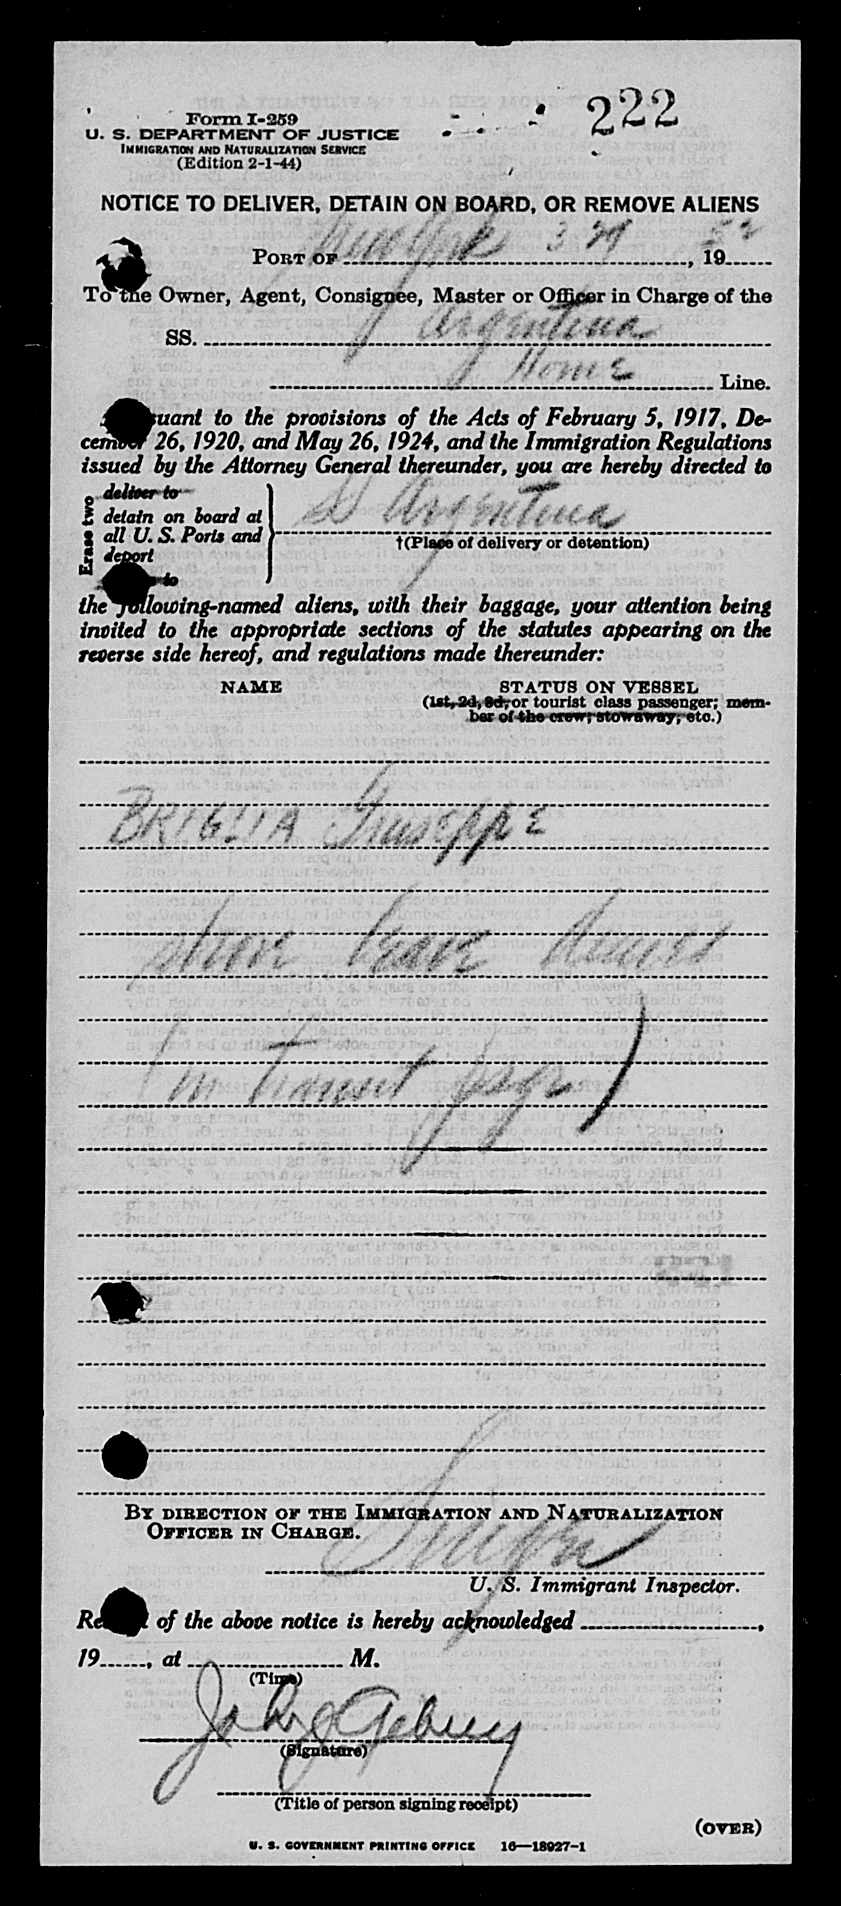 222
Form I-259
U. S. DEPARTMENT OF JUSTICE
IMMIGRATION AND NATURALIZATION SERVICE
(Edition 2-1-44)
NOTICE TO DELIVER, DETAIN ON BOARD, OR REMOVE ALIENS
PORT OF New York 3 29, 1952
To the Owner, Agent, Consignee, Master or Officer in Charge of the
SS. Argentina
Home Line.
suant to the provisions of the Acts of February 5, 1917, De-
cember 26, 1920, and May 26, 1924, and the Immigration Regulations
issued by the Attorney General thereunder, you are hereby directed to
Erase two
deliver to
detain on board at
all U. S. Ports and
deport
to
SS Argentina
†(Place of delivery or detention)
the following-named aliens, with their baggage, your attention being
invited to the appropriate sections of the statutes appearing on the
reverse side hereof, and regulations made thereunder:
NAME STATUS ON VESSEL
(1st, 2d, 3d, or tourist class passenger; mem-
ber of the crew; stowaway, etc.)
BRIGLIA Giuseppe
shore leave denied
(in transit psgr)
BY DIRECTION OF THE IMMIGRATION AND NATURALIZATION
OFFICER IN CHARGE.
U. S. Immigrant Inspector.
Re of the above notice is hereby acknowledged ,
19 , at M.
(Time)
(Signature)
(Title of person signing receipt)
(OVER)
U. S. GOVERNMENT PRINTING OFFICE 16—18927-1